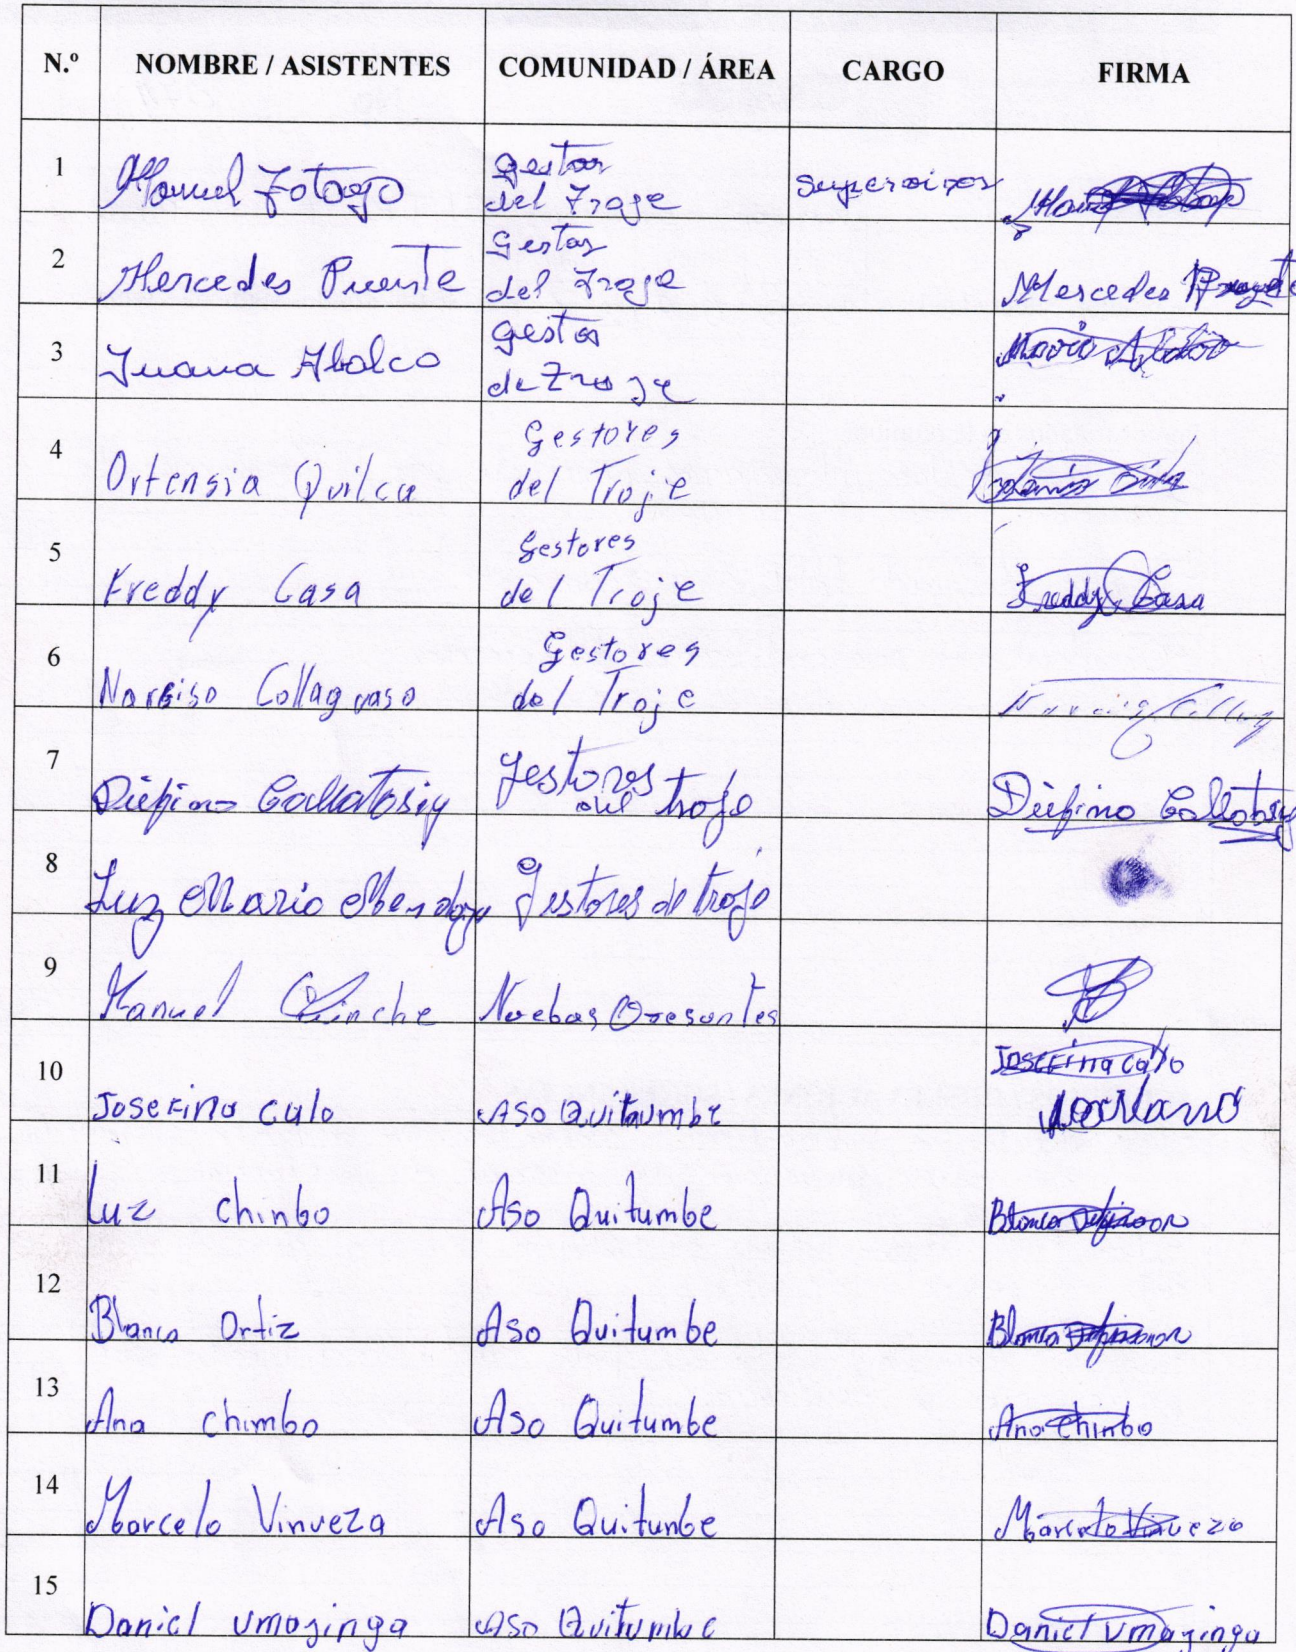 N.º NOMBRE / ASISTENTES COMUNIDAD / ÁREA CARGO FIRMA
1 Manuel Totasjo Gestor
del Troje Supervisor
2 Mercedes Puente Gestor
del Troje Mercedes
3 Juana Abalco gestor
de Troje
4 Ortensia Quilca Gestores
del Troje
5 Freddy Casa Gestores
del Troje Freddy Casa
6 Narsiso Collaguaso Gestores
del Troje
7 Diefino Callatosig gestores
del troje Diefino Callotosig
8 Luz Maria Mendoza Gestores de troje
9 Manuel Chinche Nuebos Oresontes
10 Josefina Culo Aso Quitumbe Josefina Calo
11 Luz Chinbo Aso Quitumbe Blanca
12 Blanca Ortiz Aso Quitumbe Blanca
13 Ana Chimbo Aso Quitumbe Ana Chimbo
14 Marcelo Vinueza Aso Quitumbe Marcelo Vinueza
15 Daniel Umajinga Aso Quitumbe Daniel Umajinga